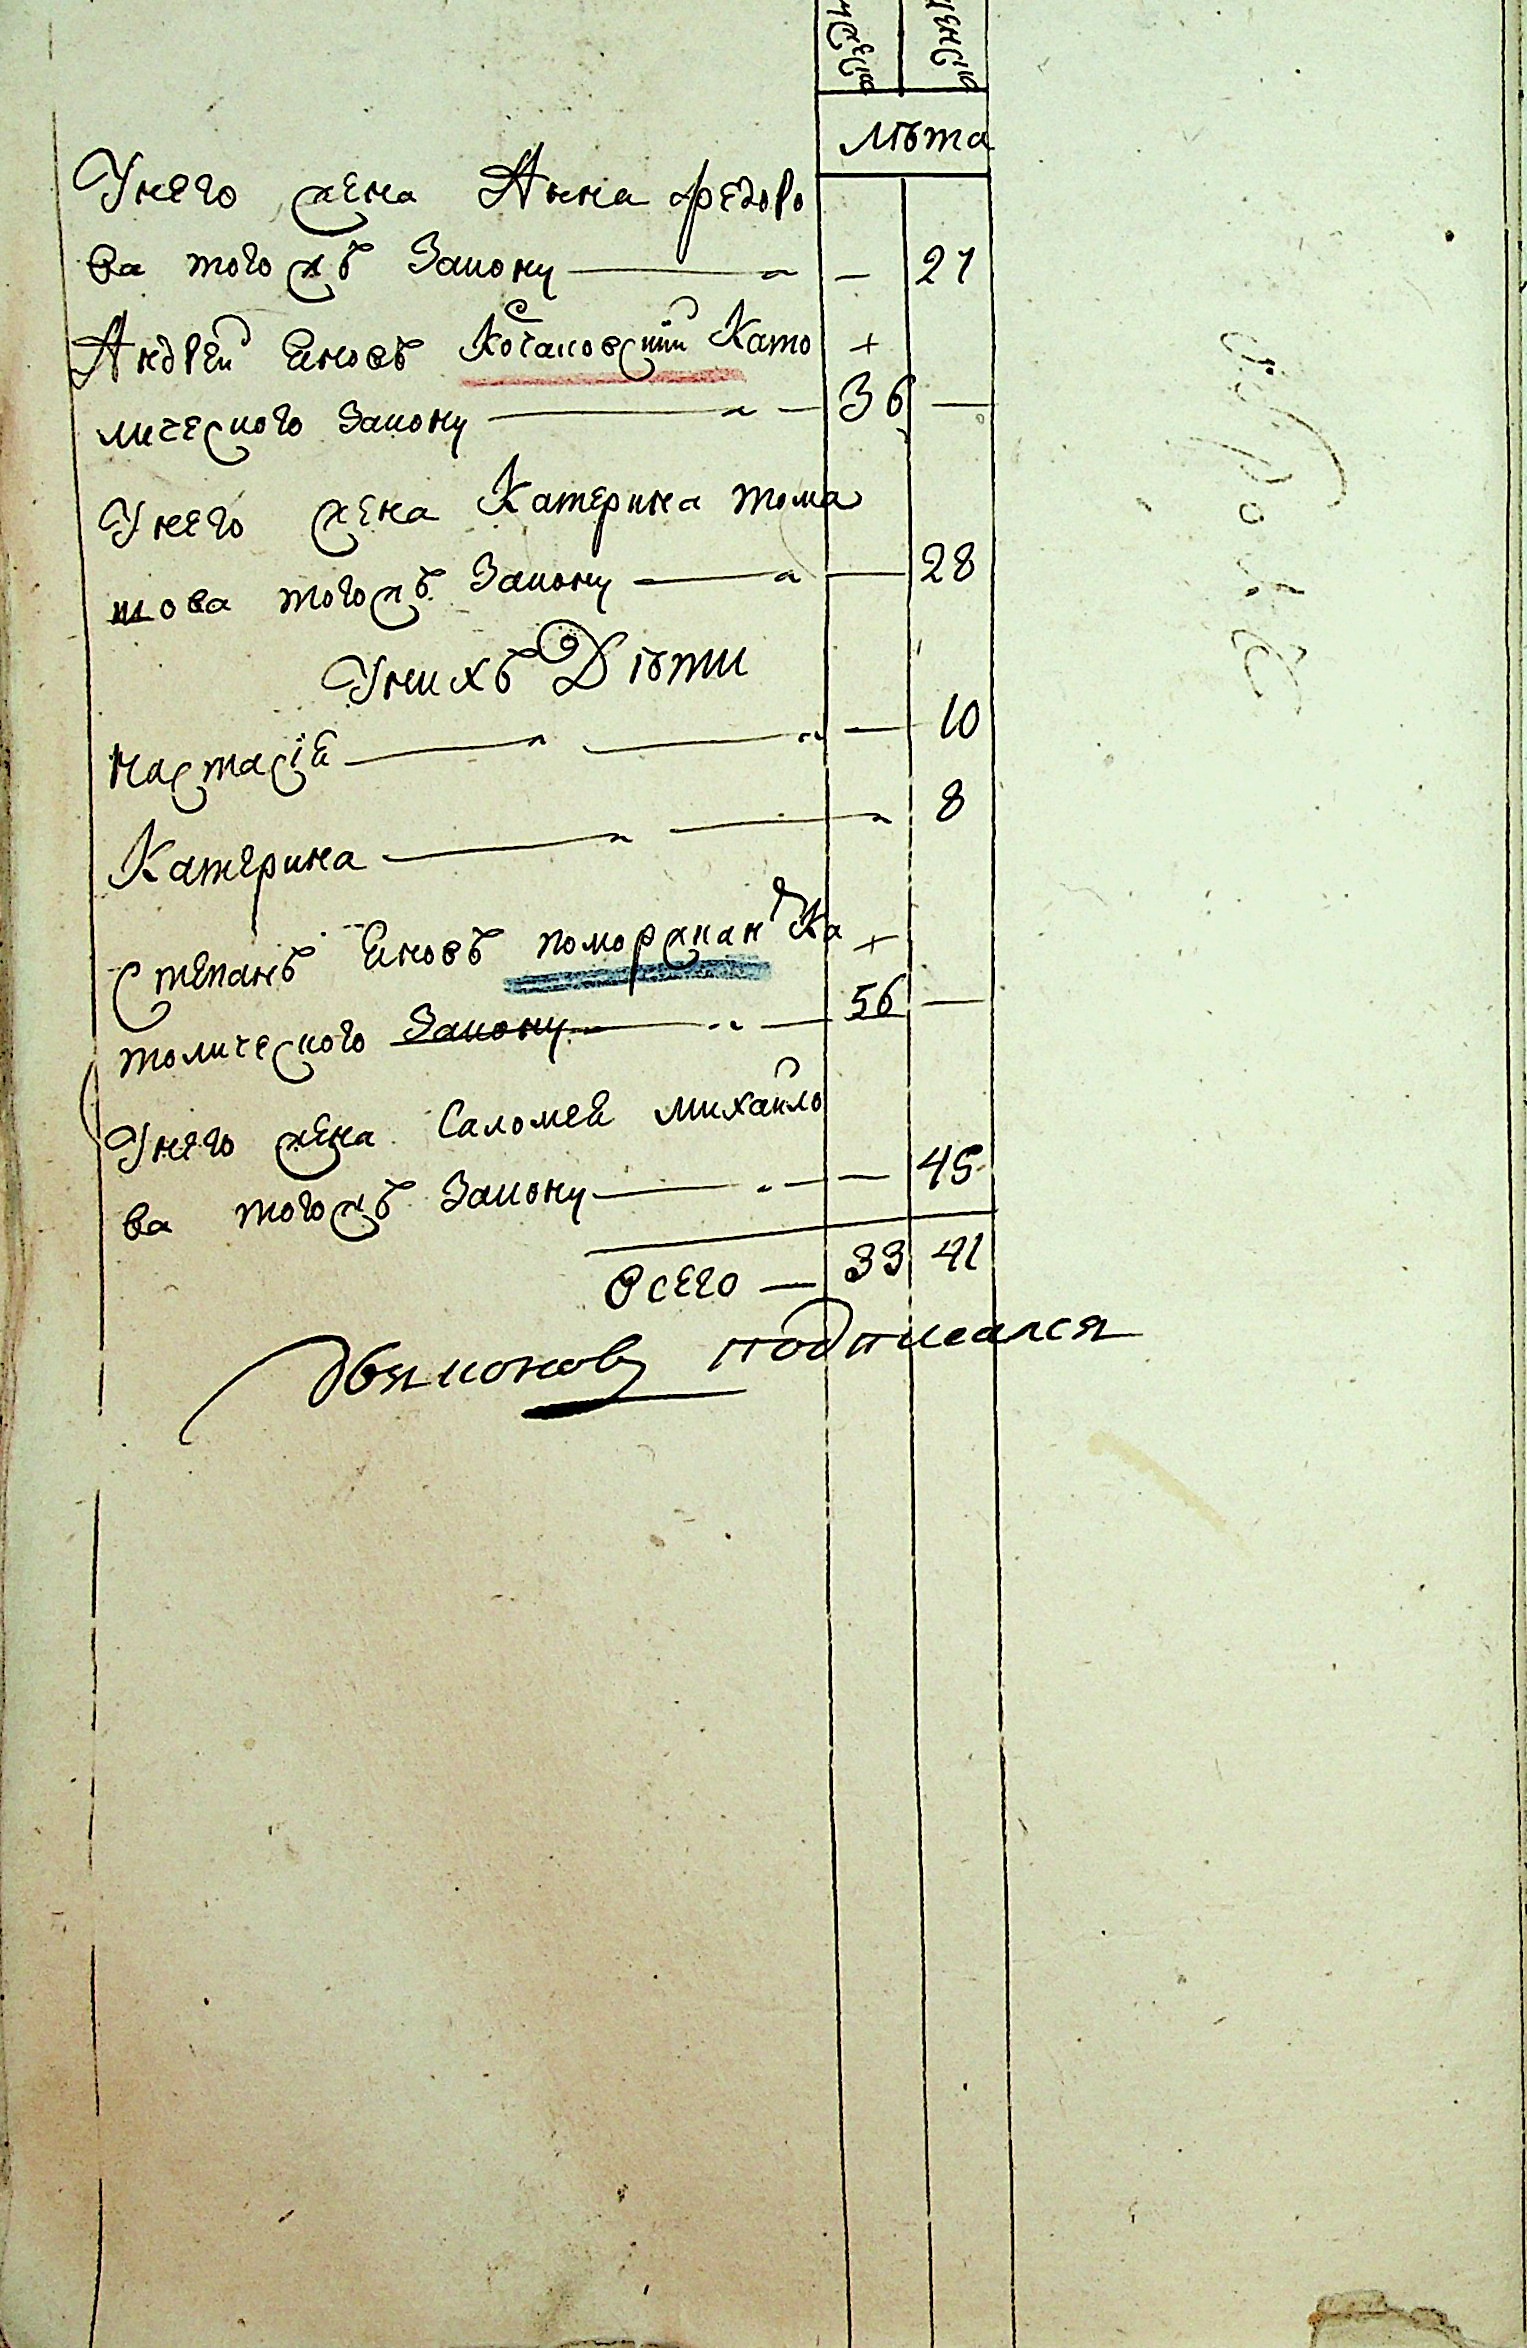 лѣта
Унего жена Анна федоро
ва тогожъ Закону — 27
Андрей Яновъ Кочаковскій Като +
лического Закону — 36 —
Унего жена Катерина тома
шова тогожъ Закону — 28
Унихъ Дѣти
Настасія — 10
Катерина — 8
Степанъ Яновъ Ка +
толического Закону — 56 —
Унего жена Саломея михайло
ва тогожъ Закону — 45
Всего — 33 41
подписался